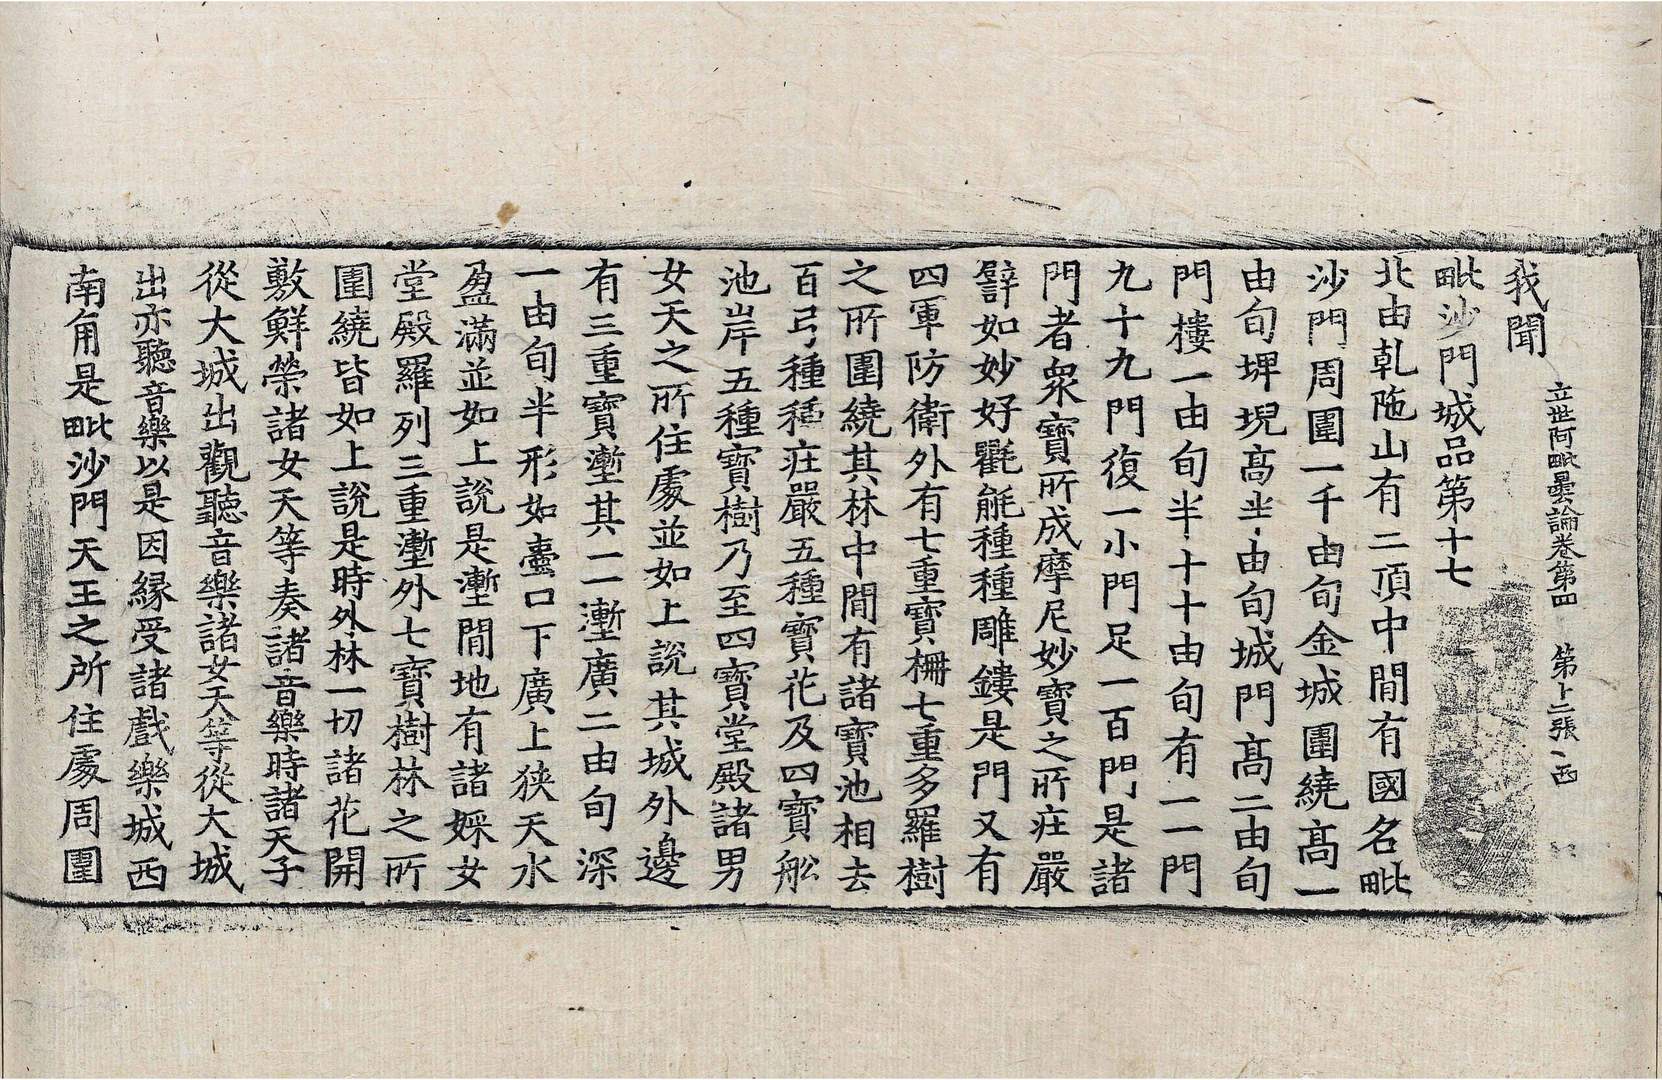 立世阿毗曇論卷第四 第二張 西
我聞
毗沙門城品第十七
北由乹陁山有二頂中閒有國名毗
沙門周圍一千由旬金城圍繞髙一
由旬埤堄髙半由旬城門髙二由旬
門樓一由旬半十十由旬有一一門
九十九門復一小門足一百門是諸
門者衆寶所成摩尼妙寶之所莊嚴
譬如妙好氍毹種種雕鏤是門又有
四軍防衛外有七重寶柵七重多羅樹
之所圍繞其林中閒有諸寶池相去
百弓種種莊嚴五種寶花及四寶舩
池岸五種寶樹乃至四寶堂殿諸男
女天之所住處並如上說其城外邊
有三重寶壍其一一壍廣二由旬深
一由旬半形如壷口下廣上狹天水
盈滿並如上說是壍閒地有諸婇女
堂殿羅列三重壍外七寶樹林之所
圍繞皆如上說是時外林一切諸花開
敷鮮榮諸女天等奏諸音樂時諸天子
從大城出觀聽音樂諸女天等從大城
出亦聽音樂以是因緣受諸戲樂城西
南角是毗沙門天王之所住處周圍